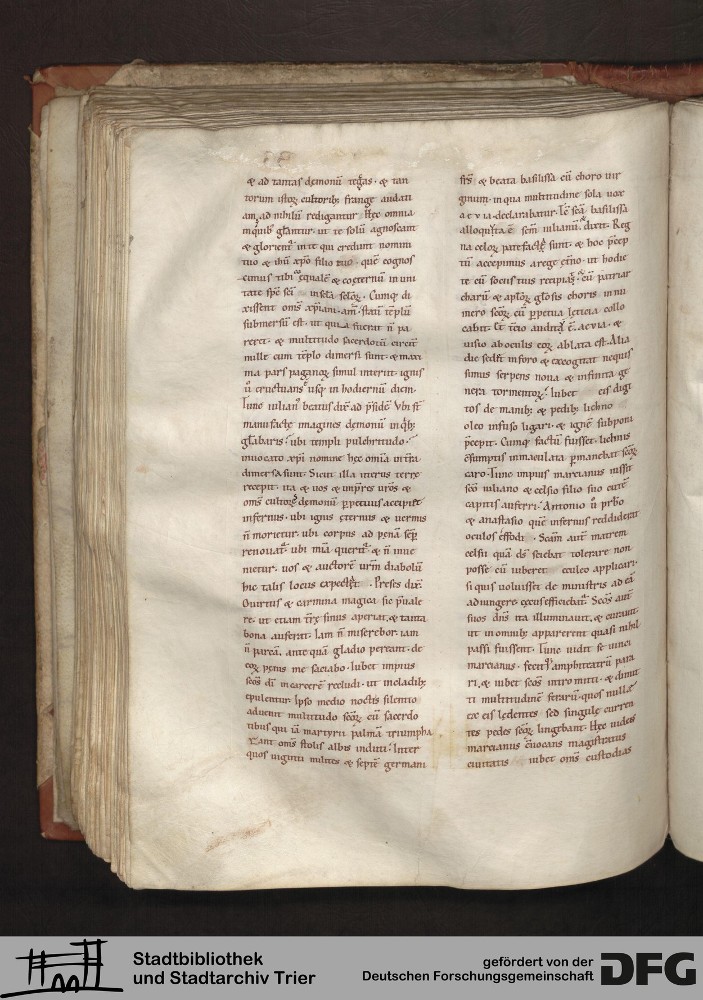 & ad tantas demonū teras · & tan
torum istoꝝ cultorib; frange audati
am. ad nihilū redigantur. Hęc omnia
in quib; głantur. ut te solū agnoscant
& glorient̄ in te qui credunt nomini
tuo & ihū xp̄o filio tuo · quē cognos
cimus tibi equalē & coęternū in uni
tate sp̄c sc̄i in sc̄la sc̄loꝝ. Cumq; di
xissent om̄s xp̄iani · am̄ · statī tēplū
submersū est · ut quasi fuerit n̄ pa
reret · & multitudo sacerdotū circit̄
mille cum tēplo dimersi sunt · & maxi
ma pars paganoꝝ simul interiit · ignis
ū eructuans usq; in hodiernū diem.
Tunc iulian' beatus dix̄ ad p̄sidē. Vbi st̄
manu factę imagines dęmoniū in qb;
głabaris · ubi templi pulchritudo ·
inuocato xp̄i nomine hęc om̄ia in t̄ra
dimersa sunt. Sicut illa interius terrę
recepit · ita & uos & imp̄res ur̄os &
om̄s cultoꝝ dęmonū perpetuus accipi&
infernus · ubi ignis ęternus & uermis
n̄ morietur · ubi corpus ad penā sēp
renouat̄ · ubi mīa querit̄ & n̄ inue
nietur · uos & auctorē ur̄m diabolū
hic talis locus expectet. Preses dix̄.
Quirtus & carmina magica sic p̄uale
re · ut etiam t̄rę sinus aperiat. & tanta
bona auferat. Iam n̄ miserebor. iam
n̄ parcā. ante quā gladio pereant · de
eoꝝ penis me saciabo · Iubet impius
sc̄os dī in carcerē recludi · ut in cladib;
epulentur. Ipso medio noctis silentio
aduenit multitudo sc̄oꝝ cū sacerdo
tibus qui iā martyrii palmā triumpha
rant om̄s stolis albis induti. Inter
quos uiginti milites & septē germani
fr̄s & beata basilissa cū choro uir
ginum · in qua multitudine sola uox
aeuia · declarabatur. Tc̄ sc̄a basilissa
alloquuta ē sc̄m iulianū dix̄it. Reg
na celoꝝ patefacta sunt · & hoc p̄cep
tū accepimus a rege ęt̄no · ut hodie
te cū sociis tuis recipiat · cū patriar
charū & ap̄loꝝ gl̄osis choris in nu
mero sc̄oꝝ cū ppetua lęticia collo
cabit. Et t̄cio audita ē · aeuia · &
uisio ab oculis eoꝝ ablata est. Alia
die sedit in foro & excogitat nequis
simus serpens noua & infinita ge
nera tormentoꝝ. Iubet eis digi
tos de manib; & pedib; lichno
oleo infuso ligari · & ignē subponi
p̄cepit. Cumq; factū fuisset · lichnis
c̄sumptis inmaculata pmanebat sc̄oꝝ
caro. Tunc impius marcianus iussit
sc̄o iuliano & celsio filio suo cutē
capitis auferri. Antonio ū prb̄o
& anastasio quē infernus reddiderat
oculos effodi. Sc̄am aut̄ matrem
celsii quā ds̄ sciebat tolerare non
posse cū iuberet eculeo applicari ·
si quis uoluisset de ministris ad eā
adiungere cecus efficiebat̄. Sc̄os aut̄
suos dn̄s ita illuminauit. & curauit
ut in omnib; apparerent quasi nihil
passi fuissent. Tunc uidit se uinci
marcianus · fecitq; amphiteatrū para
ri. & iubet sc̄os intro mitti · & dimit
ti multitudinē ferarū · quos nulla
ex eis lędentes sed singulę curren
tes pedes sc̄oꝝ lingebant. Hęc uidens
marcianus c̄uocans magistratus
ciuitatis iubet om̄s custodias
Stadtbibliothek
und Stadtarchiv Trier
gefördert von der
Deutschen Forschungsgemeinschaft
DFG